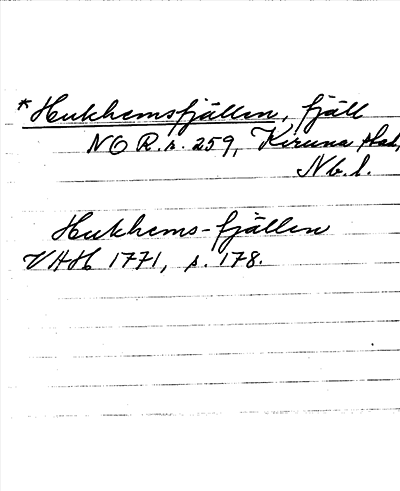 *Hukhemsfjällen, fjäll
NO R.s. 259, Kiruna stad,
Nb.l.
Hukhems-fjällen
VAH 1771, s. 178.